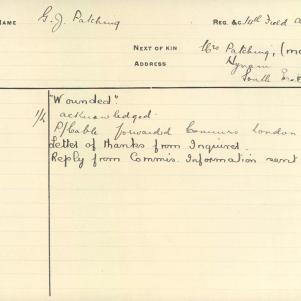 NAME G. J. Patching REG. &c. 10th Field A
NEXT OF KIN Mrs Patching, (mo
ADDRESS
South
"Wounded".
1/6 acknowledged.
P/Cable forwarded Commrs London
Letter of thanks from Inquirer.
Reply from Commis. Information sent